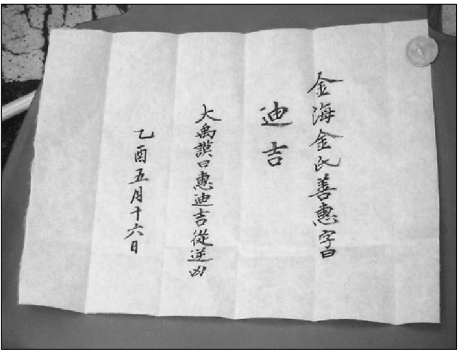 金海金氏善惠字曰
迪吉
大禹謨曰惠迪吉從逆凶
乙酉五月十六日